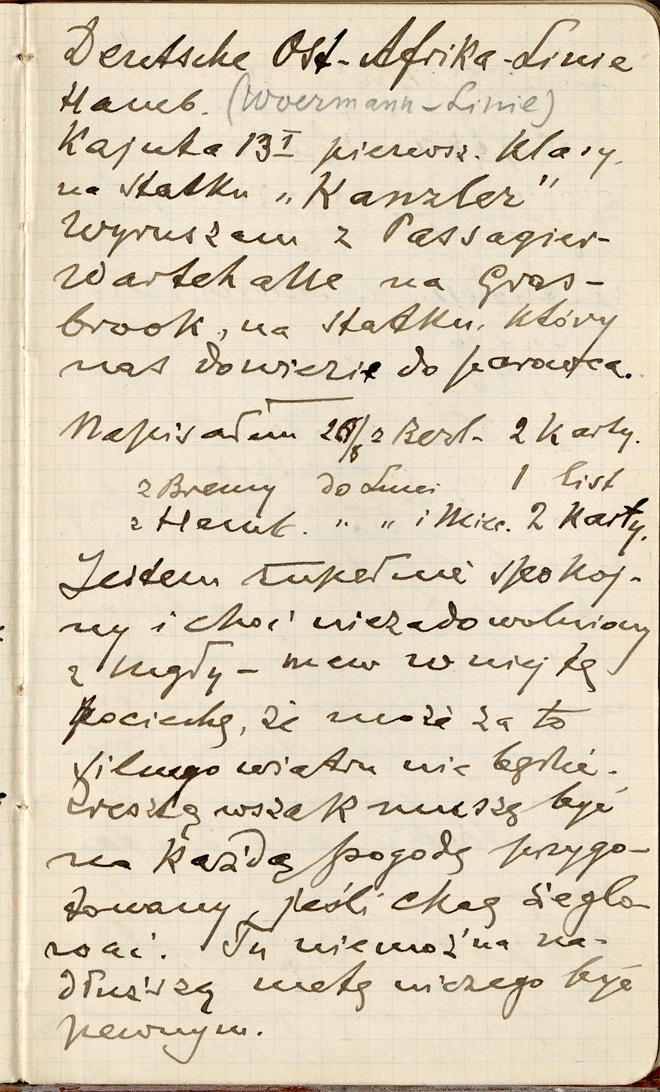 Deutsche Ost-Afrika-Linie
Hamb. (Woermann-Linie)
Kajuta 13I pierwsz. klasy.
na statku „Kanzler"
Wyruszam z Passagier-
Wartehalle na Gras-
brook, na statku, który
nas dowiezie do parowca.
Napisałem 26/8 z Berl. 2 karty.
z Bremy do Luci 1 list
z Hamb. " " i Mics. 2 karty.
Jestem zupełnie spokoj-
ny i choć niezadowolniony
z mgły - mam w niej tą
pociechę, że może za to
silnego wiatru nie będzie.
Zresztą wszak muszę być
na każdą pogodę przygo-
towany, jeśli chcę żeglo-
wać. Tu niemożna na-
dłuższą metę niczego być
pewnym.